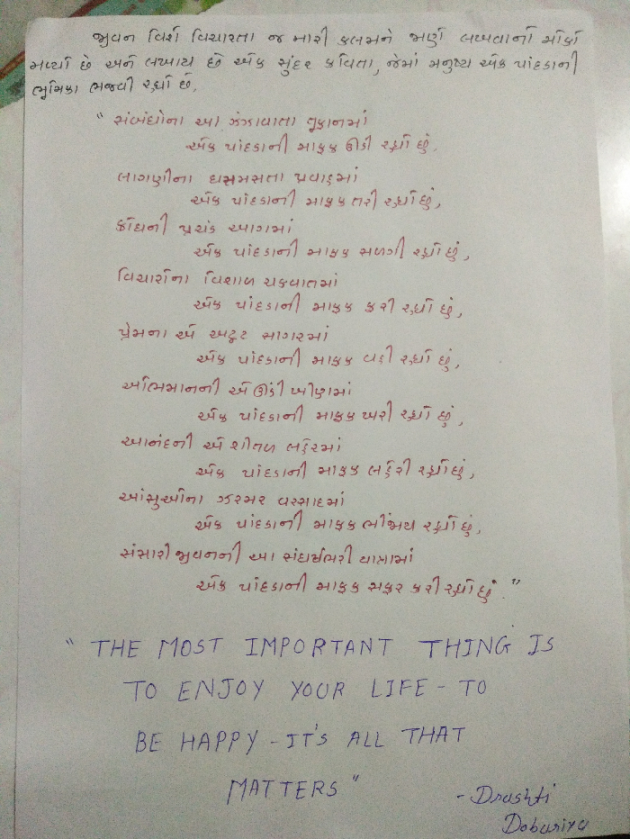 જીવન વિશે વિચારતા જ મારી કલમને જાણે લખવાનો મોકો
મળ્યો છે અને લખાય છે એક સુંદર કવિતા, જેમાં મનુષ્ય એક પાંદડાની
ભૂમિકા ભજવી રહ્યો છે.
"સંબંધોના આ ઝંઝાવાતા તૂફાનમાં
એક પાંદડાની માફક ઊડી રહ્યો છું.
લાગણીના ધસમસતા પ્રવાહમાં
એક પાંદડાની માફક તરી રહ્યો છું,
ક્રોધની પ્રચંડ આગમાં
એક પાંદડાની માફક સળગી રહ્યો છું,
વિચારોના વિશાળ ચક્રવાતમાં
એક પાંદડાની માફક ફરી રહ્યો છું,
પ્રેમના એ અતુટ સાગરમાં
એક પાંદડાની માફક વહી રહ્યો છું,
અભિમાનની એ ઊંડી ખીણમાં
એક પાંદડાની માફક ખરી રહ્યો છું,
આનંદની એ શીતળ લહેરમાં
એક પાંદડાની માફક લહેરી રહ્યો છું,
આંસુઓના ઝરમર વરસાદમાં
એક પાંદડાની માફક ભીંજાય રહ્યો છું,
સંસારી જીવનની આ સંઘર્ષભરી વાતામાં
એક પાંદડાની માફક સફર કરી રહ્યો છું."
"THE MOST IMPORTANT THING IS
TO ENJOY YOUR LIFE - TO
BE HAPPY - IT'S ALL THAT
MATTERS"
- Drashti
Dobariya